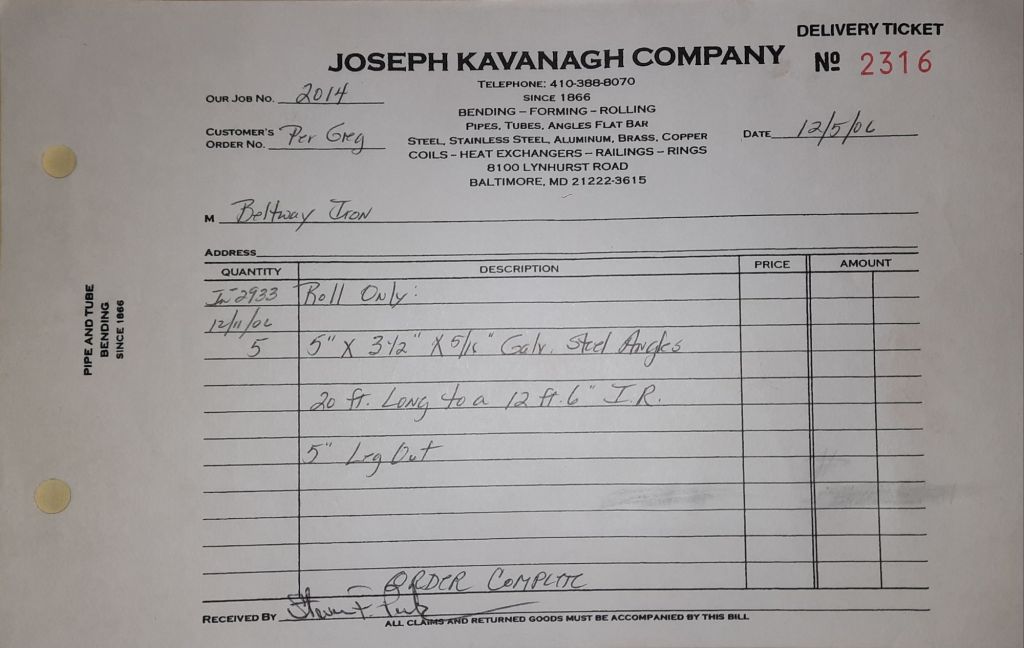 DELIVERY TICKET
JOSEPH KAVANAGH COMPANY
Nº 2316
TELEPHONE: 410-388-8070
SINCE 1866
BENDING – FORMING – ROLLING
PIPES, TUBES, ANGLES FLAT BAR
STEEL, STAINLESS STEEL, ALUMINUM, BRASS, COPPER
COILS – HEAT EXCHANGERS – RAILINGS – RINGS
8100 LYNHURST ROAD
BALTIMORE, MD 21222-3615
OUR JOB NO. 2014
CUSTOMER'S ORDER NO. Per Greg
DATE 12/5/06
M Beltway Iron
ADDRESS
QUANTITY DESCRIPTION PRICE AMOUNT
In-2933 Roll Only:
12/11/06
5 5" X 3 1/2" X 5/16" Galv. Steel Angles
20 ft. Long to a 12 ft. 6" I.R.
5" Leg Out
– ORDER COMPLETE
RECEIVED BY
ALL CLAIMS AND RETURNED GOODS MUST BE ACCOMPANIED BY THIS BILL
PIPE AND TUBE
BENDING
SINCE 1866